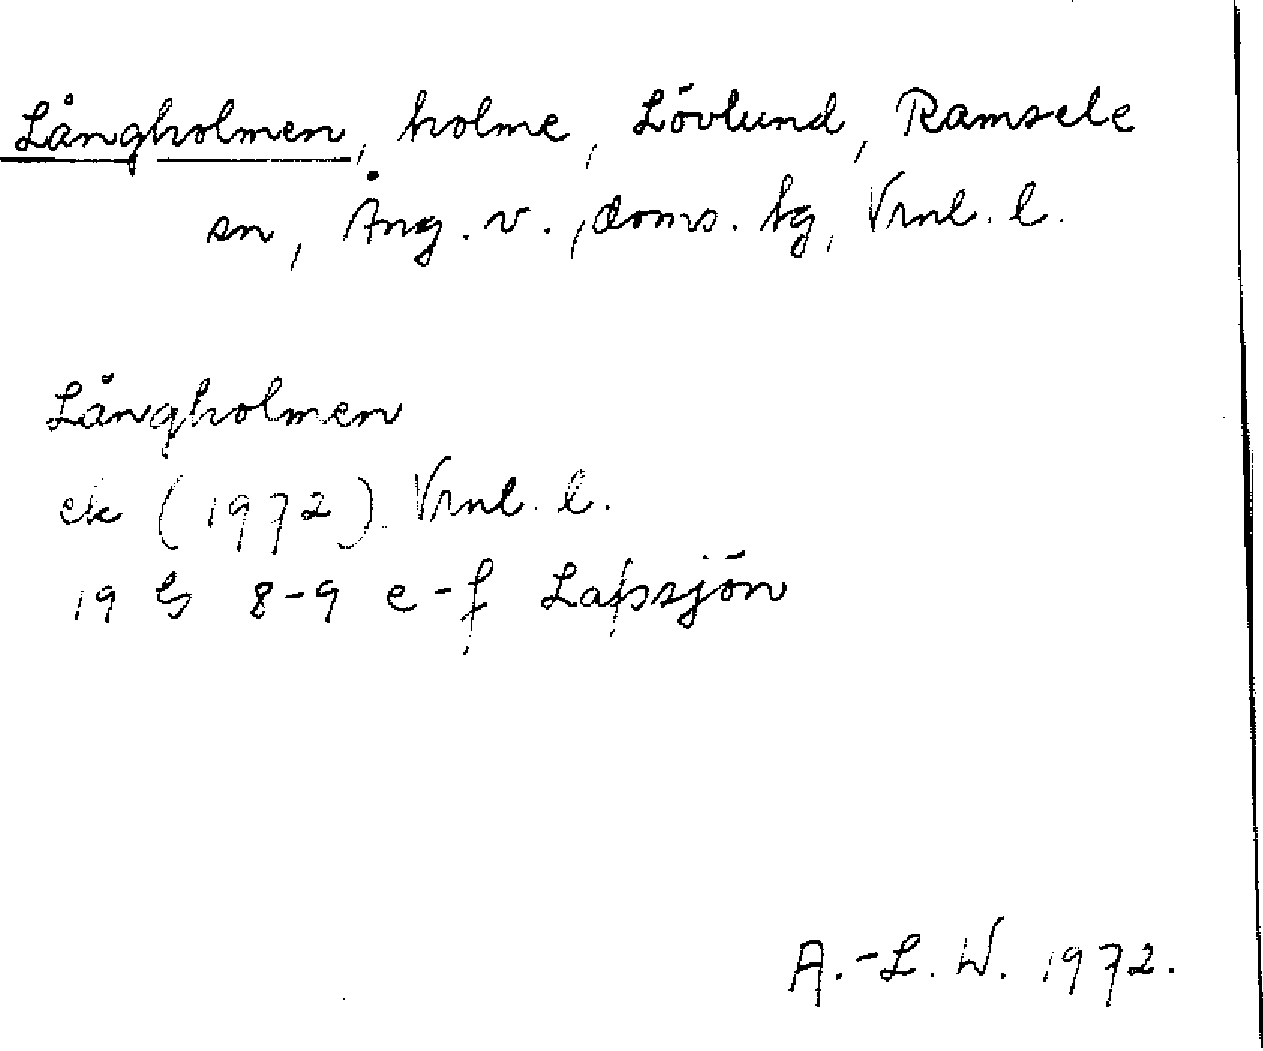 Långholmen, holme, Lövlund, Ramsele
sn, Ång. v., doms. hg, Vrnl. l.
Långholmen
ek (1972) Vrnl. l.
19 G 8-9 e-f Lafssjön
A.-L. W. 1972.